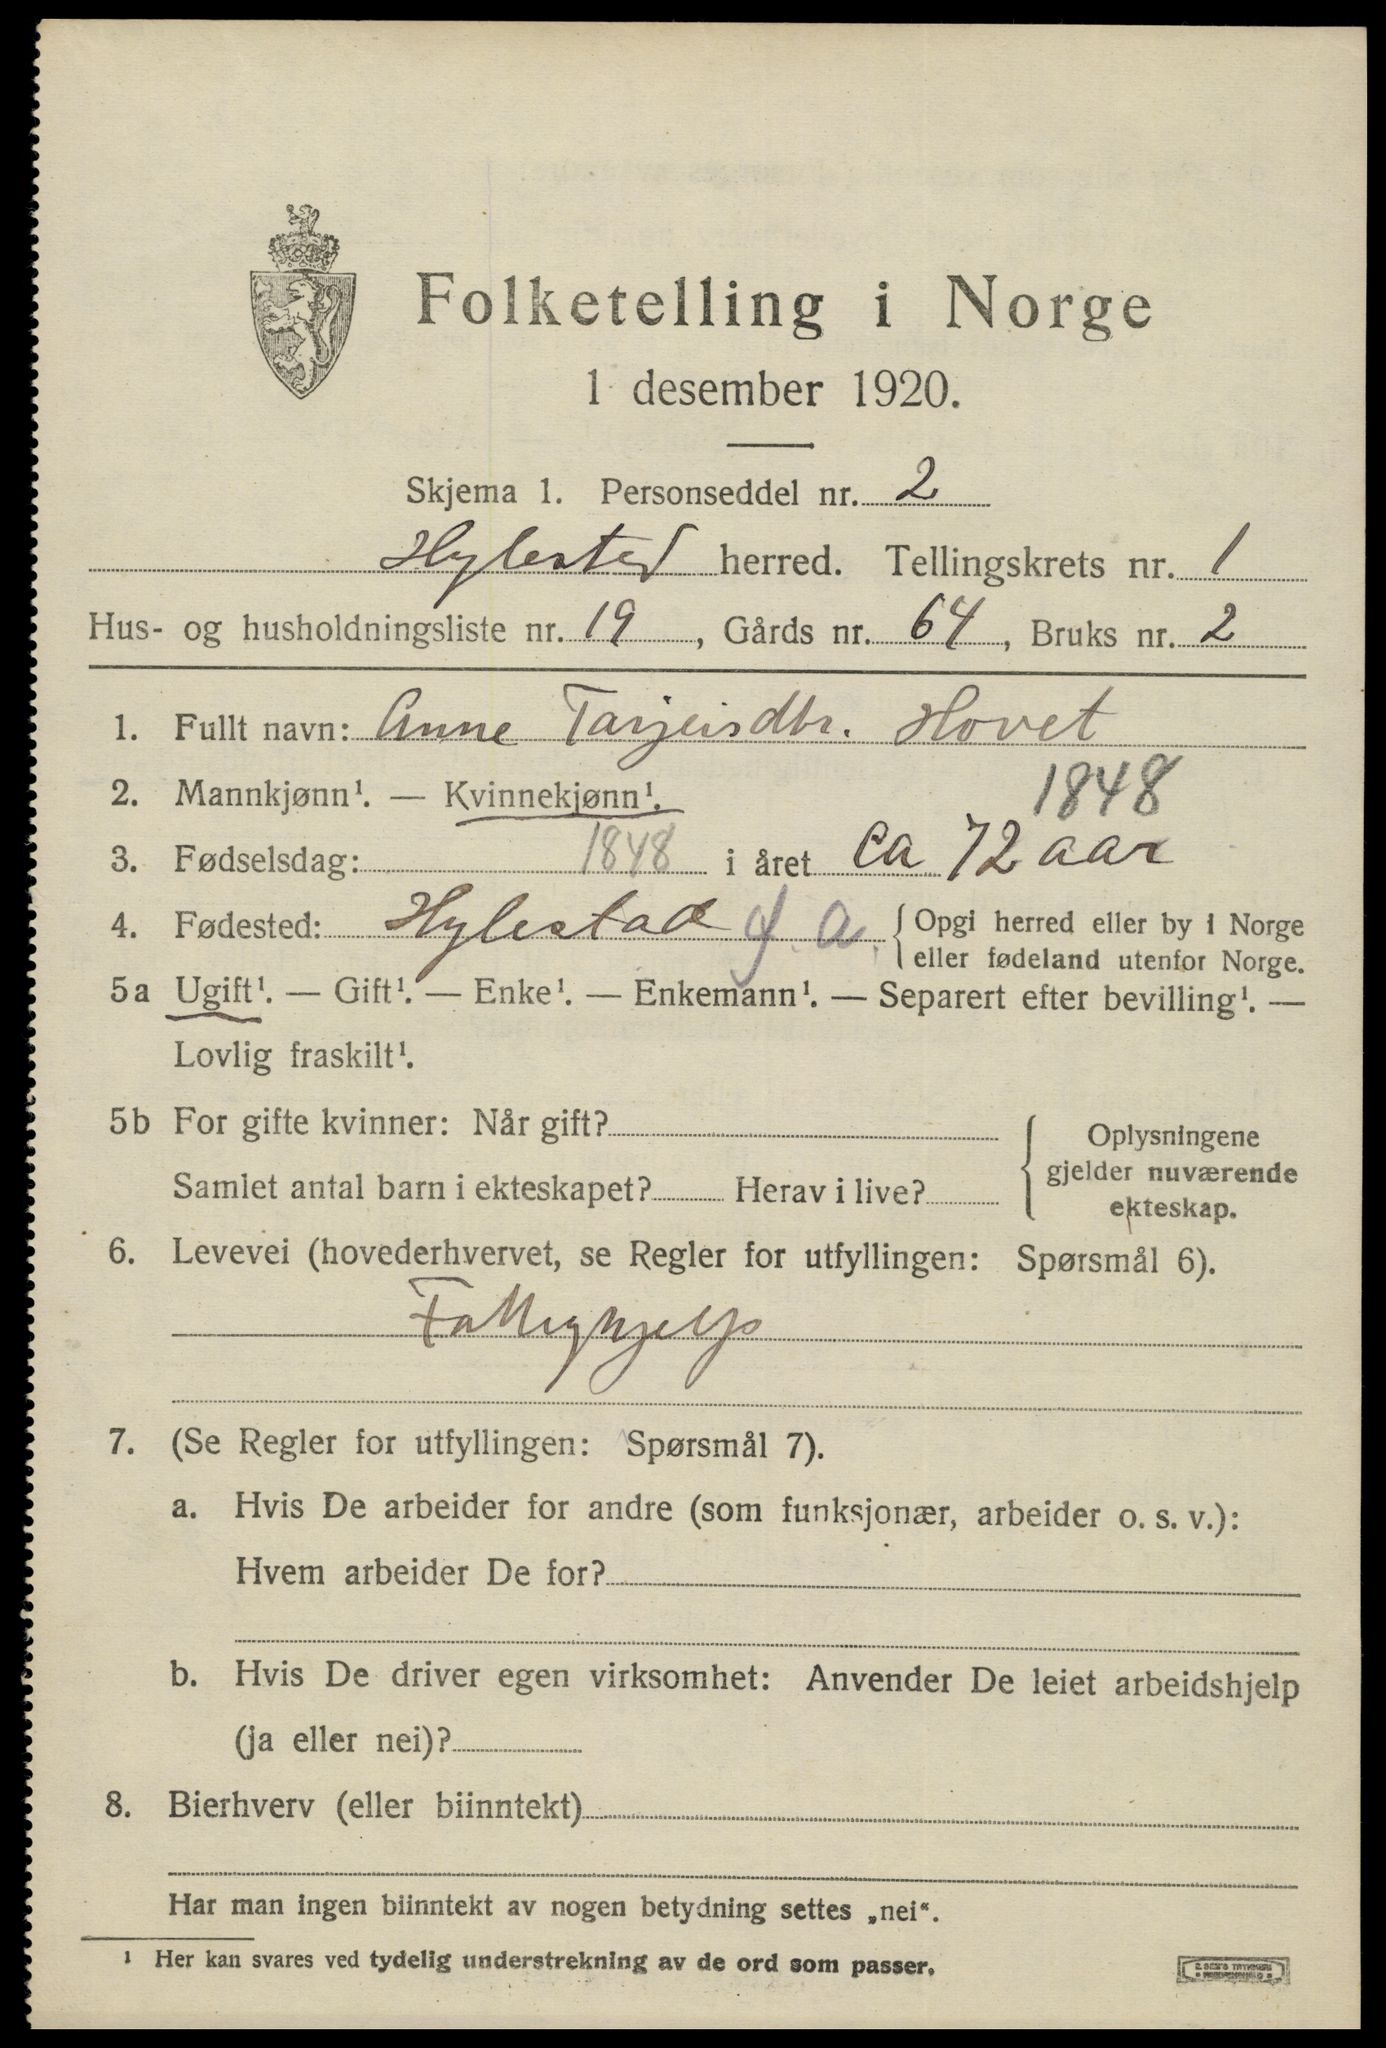 Folketelling i Norge
1 desember 1920.
Skjema 1. Personseddel nr. 2
Hylestad herred. Tellingskrets nr. 1
Hus- og husholdningsliste nr. 19, Gårds nr. 64, Bruks nr. 2
1. Fullt navn: Anne Tarjeisdtr. Hovet
2. Mannkjønn¹. — Kvinnekjønn¹. 1848
3. Fødselsdag: 1848 i året ca 72 aar
4. Fødested: Hylestad f. a. Opgi herred eller by i Norge
eller fødeland utenfor Norge.
5a Ugift¹. — Gift¹. — Enke¹. — Enkemann¹. — Separert efter bevilling¹. —
Lovlig fraskilt¹.
5b For gifte kvinner: Når gift? Oplysningene
gjelder nuværende
Samlet antal barn i ekteskapet? Herav i live?
ekteskap.
6. Levevei (hovederhvervet, se Regler for utfyllingen: Spørsmål 6).
Fattighjelp
7. (Se Regler for utfyllingen: Spørsmål 7).
a. Hvis De arbeider for andre (som funksjonær, arbeider o. s. v.):
Hvem arbeider De for?
b. Hvis De driver egen virksomhet: Anvender De leiet arbeidshjelp
(ja eller nei)?
8. Bierhverv (eller biinntekt)
Har man ingen biinntekt av nogen betydning settes „nei“.
¹ Her kan svares ved tydelig understrekning av de ord som passer.